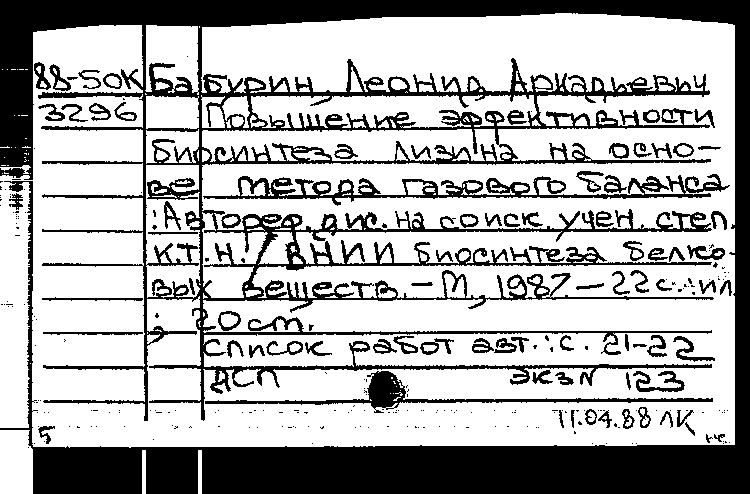 88-50К Бабурин, Леонид Аркадьевич
3296 Повышение эффективности
биосинтеза лизина на осно-
ве метода газового баланса
: Автореф. дис. на соиск. учен. степ.
к.т.н. / ВНИИ биосинтеза белко-
вых веществ. - М., 1987. - 22 с. : ил.
; 20 cm.
Список работ авт.: с. 21-22
ДСП экз N 123
11.04.88 ЛК
5